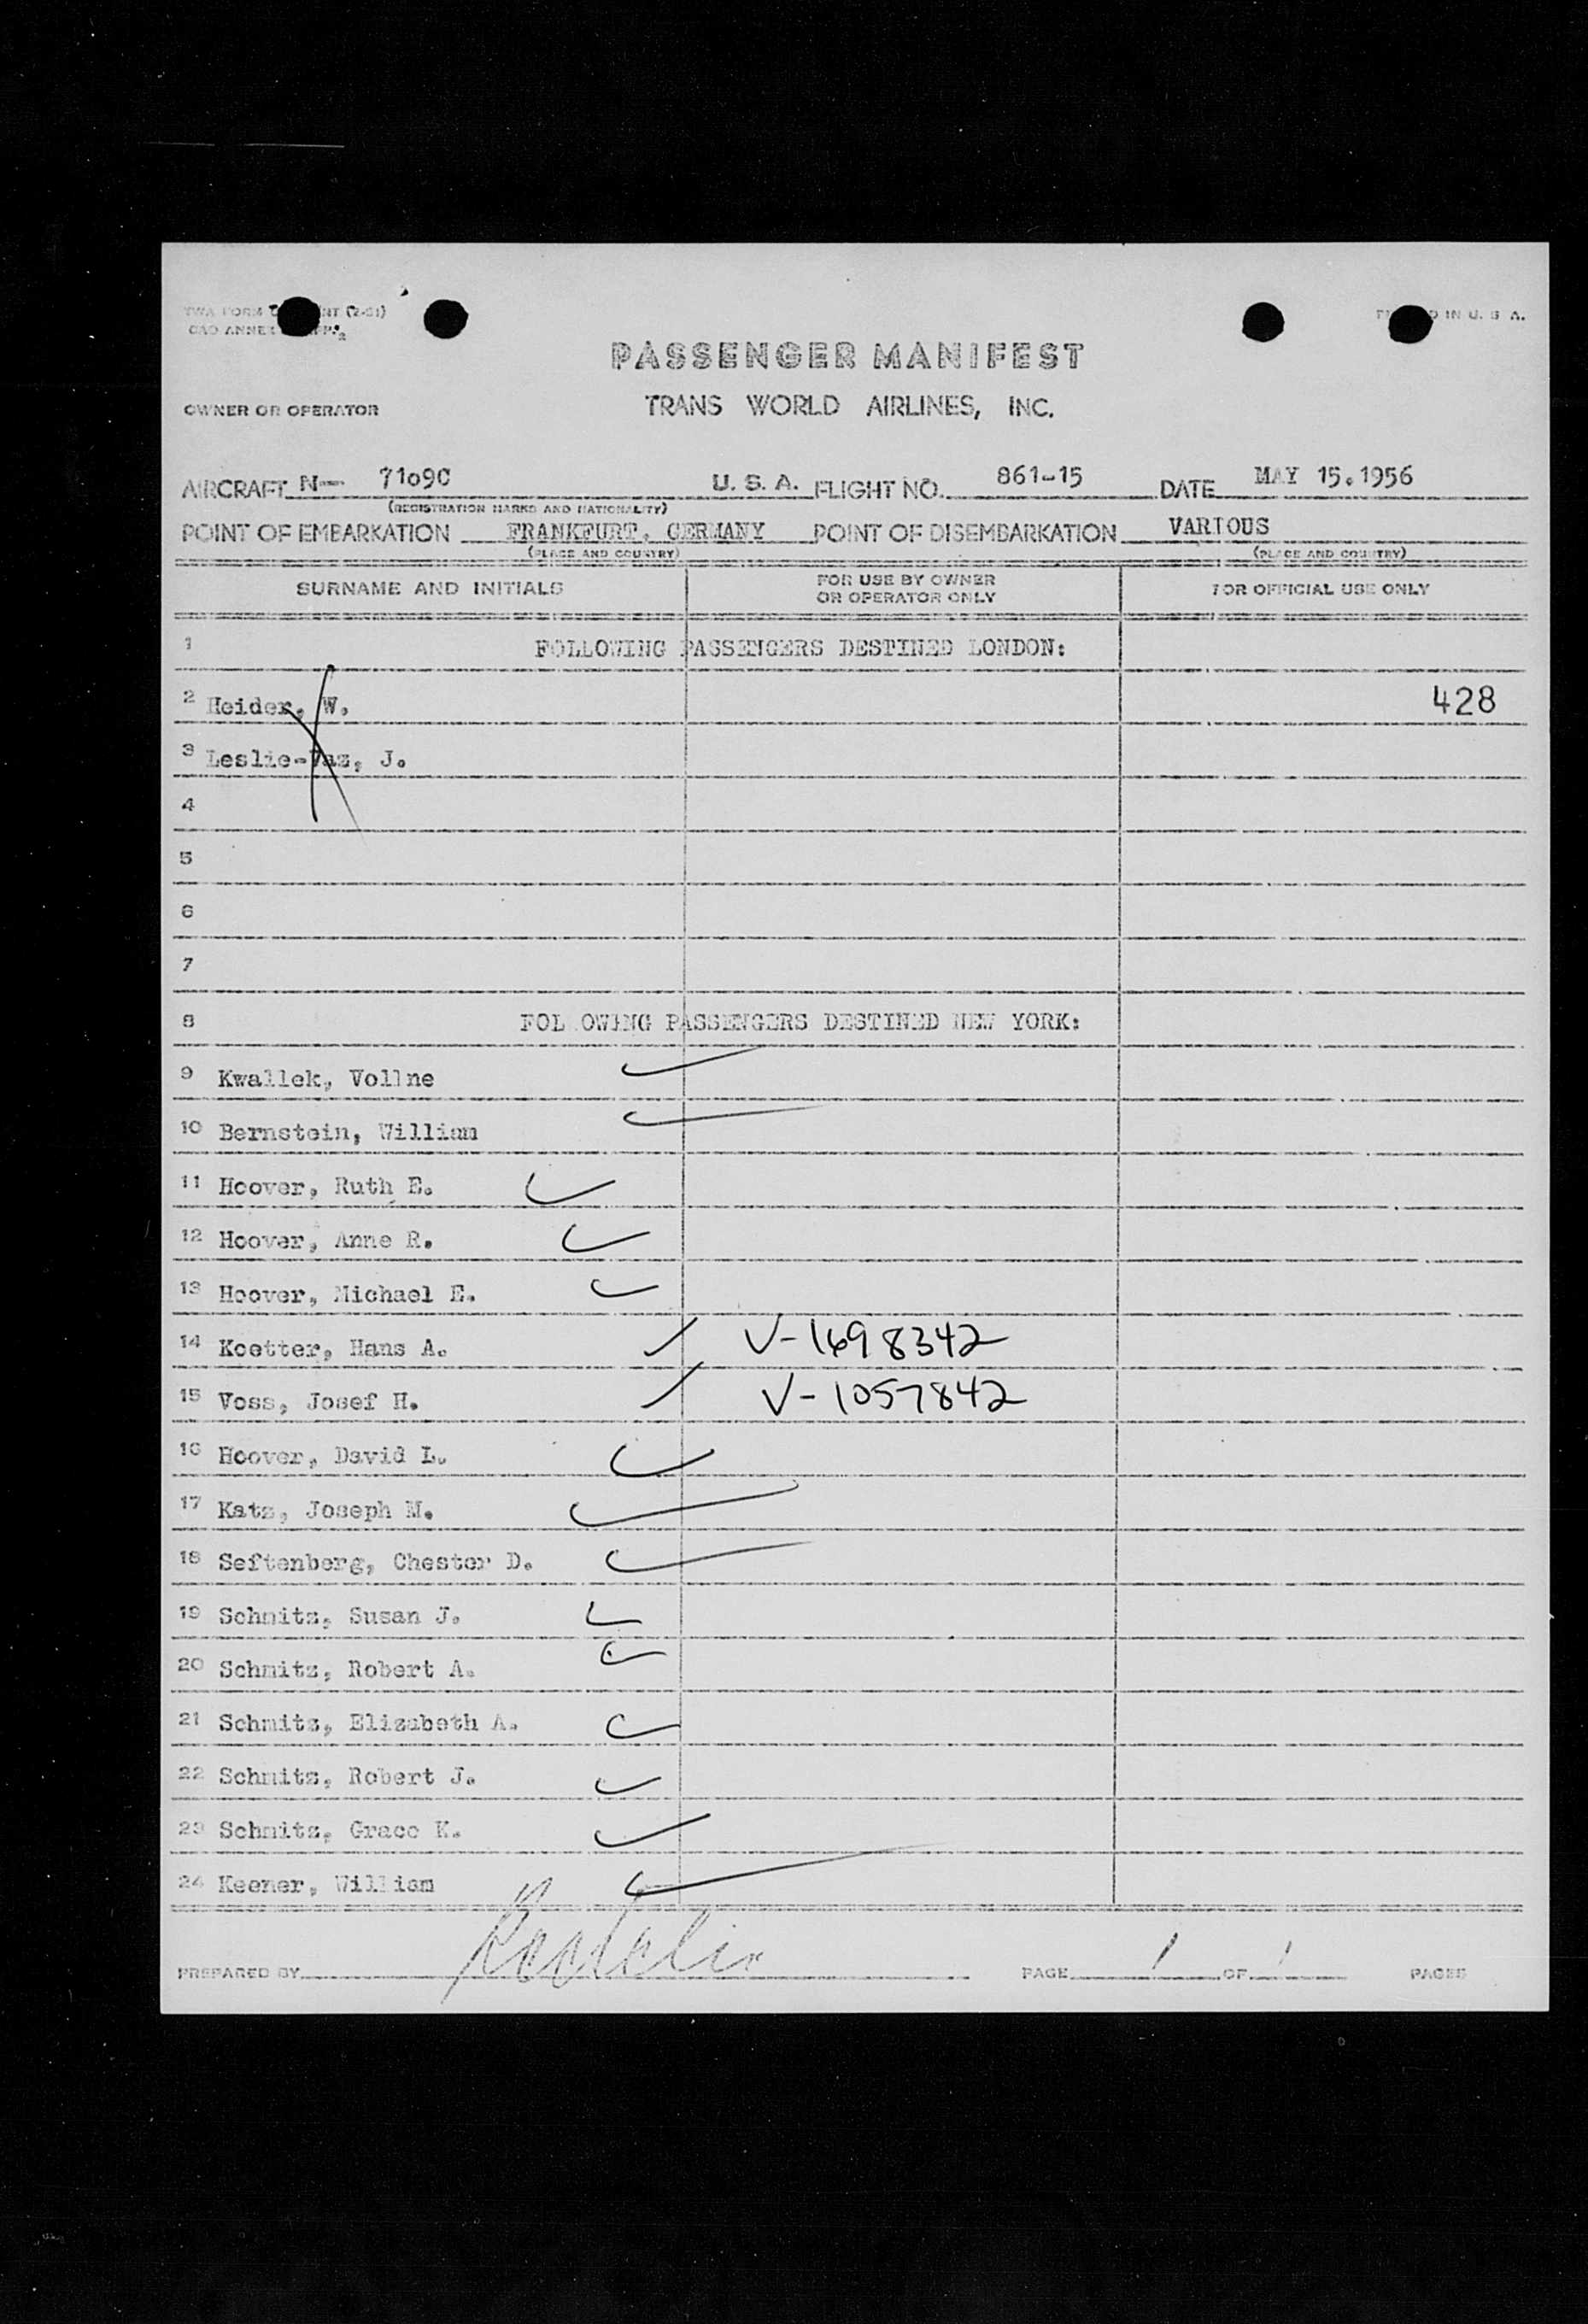 PASSENGER MANIFEST
OWNER OR OPERATOR TRANS WORLD AIRLINES, INC.
AIRCRAFT N-- 7109C U. S. A. FLIGHT NO. 861-15 DATE MAY 15.1956
(REGISTRATION MARKS AND NATIONALITY)
POINT OF EMBARKATION FRANKFURT, GERMANY POINT OF DISEMBARKATION VARIOUS
(PLACE AND COUNTRY) (PLACE AND COUNTRY)
SURNAME AND INITIALS FOR USE BY OWNER OR OPERATOR ONLY FOR OFFICIAL USE ONLY
1 FOLLOWING PASSENGERS DESTINED LONDON:
2 Heider, W. 428
3 Leslie-Vaz, J.
4
5
6
7
8 FOL OWING PASSENGERS DESTINED NEW YORK:
9 Kwallek, Vollne
10 Bernstein, William
11 Hoover, Ruth E.
12 Hoover, Anne R.
13 Hoover, Michael E.
14 Koetter, Hans A. V-1698342
15 Voss, Josef H. V-1057842
16 Hoover, David L.
17 Katz, Joseph M.
18 Seftenberg, Chester D.
19 Schmitz, Susan J.
20 Schmitz, Robert A.
21 Schmitz, Elizabeth A.
22 Schmitz, Robert J.
23 Schmitz, Grace K.
24 Keener, William
PREPARED BY PAGE 1 OF 1 PAGES